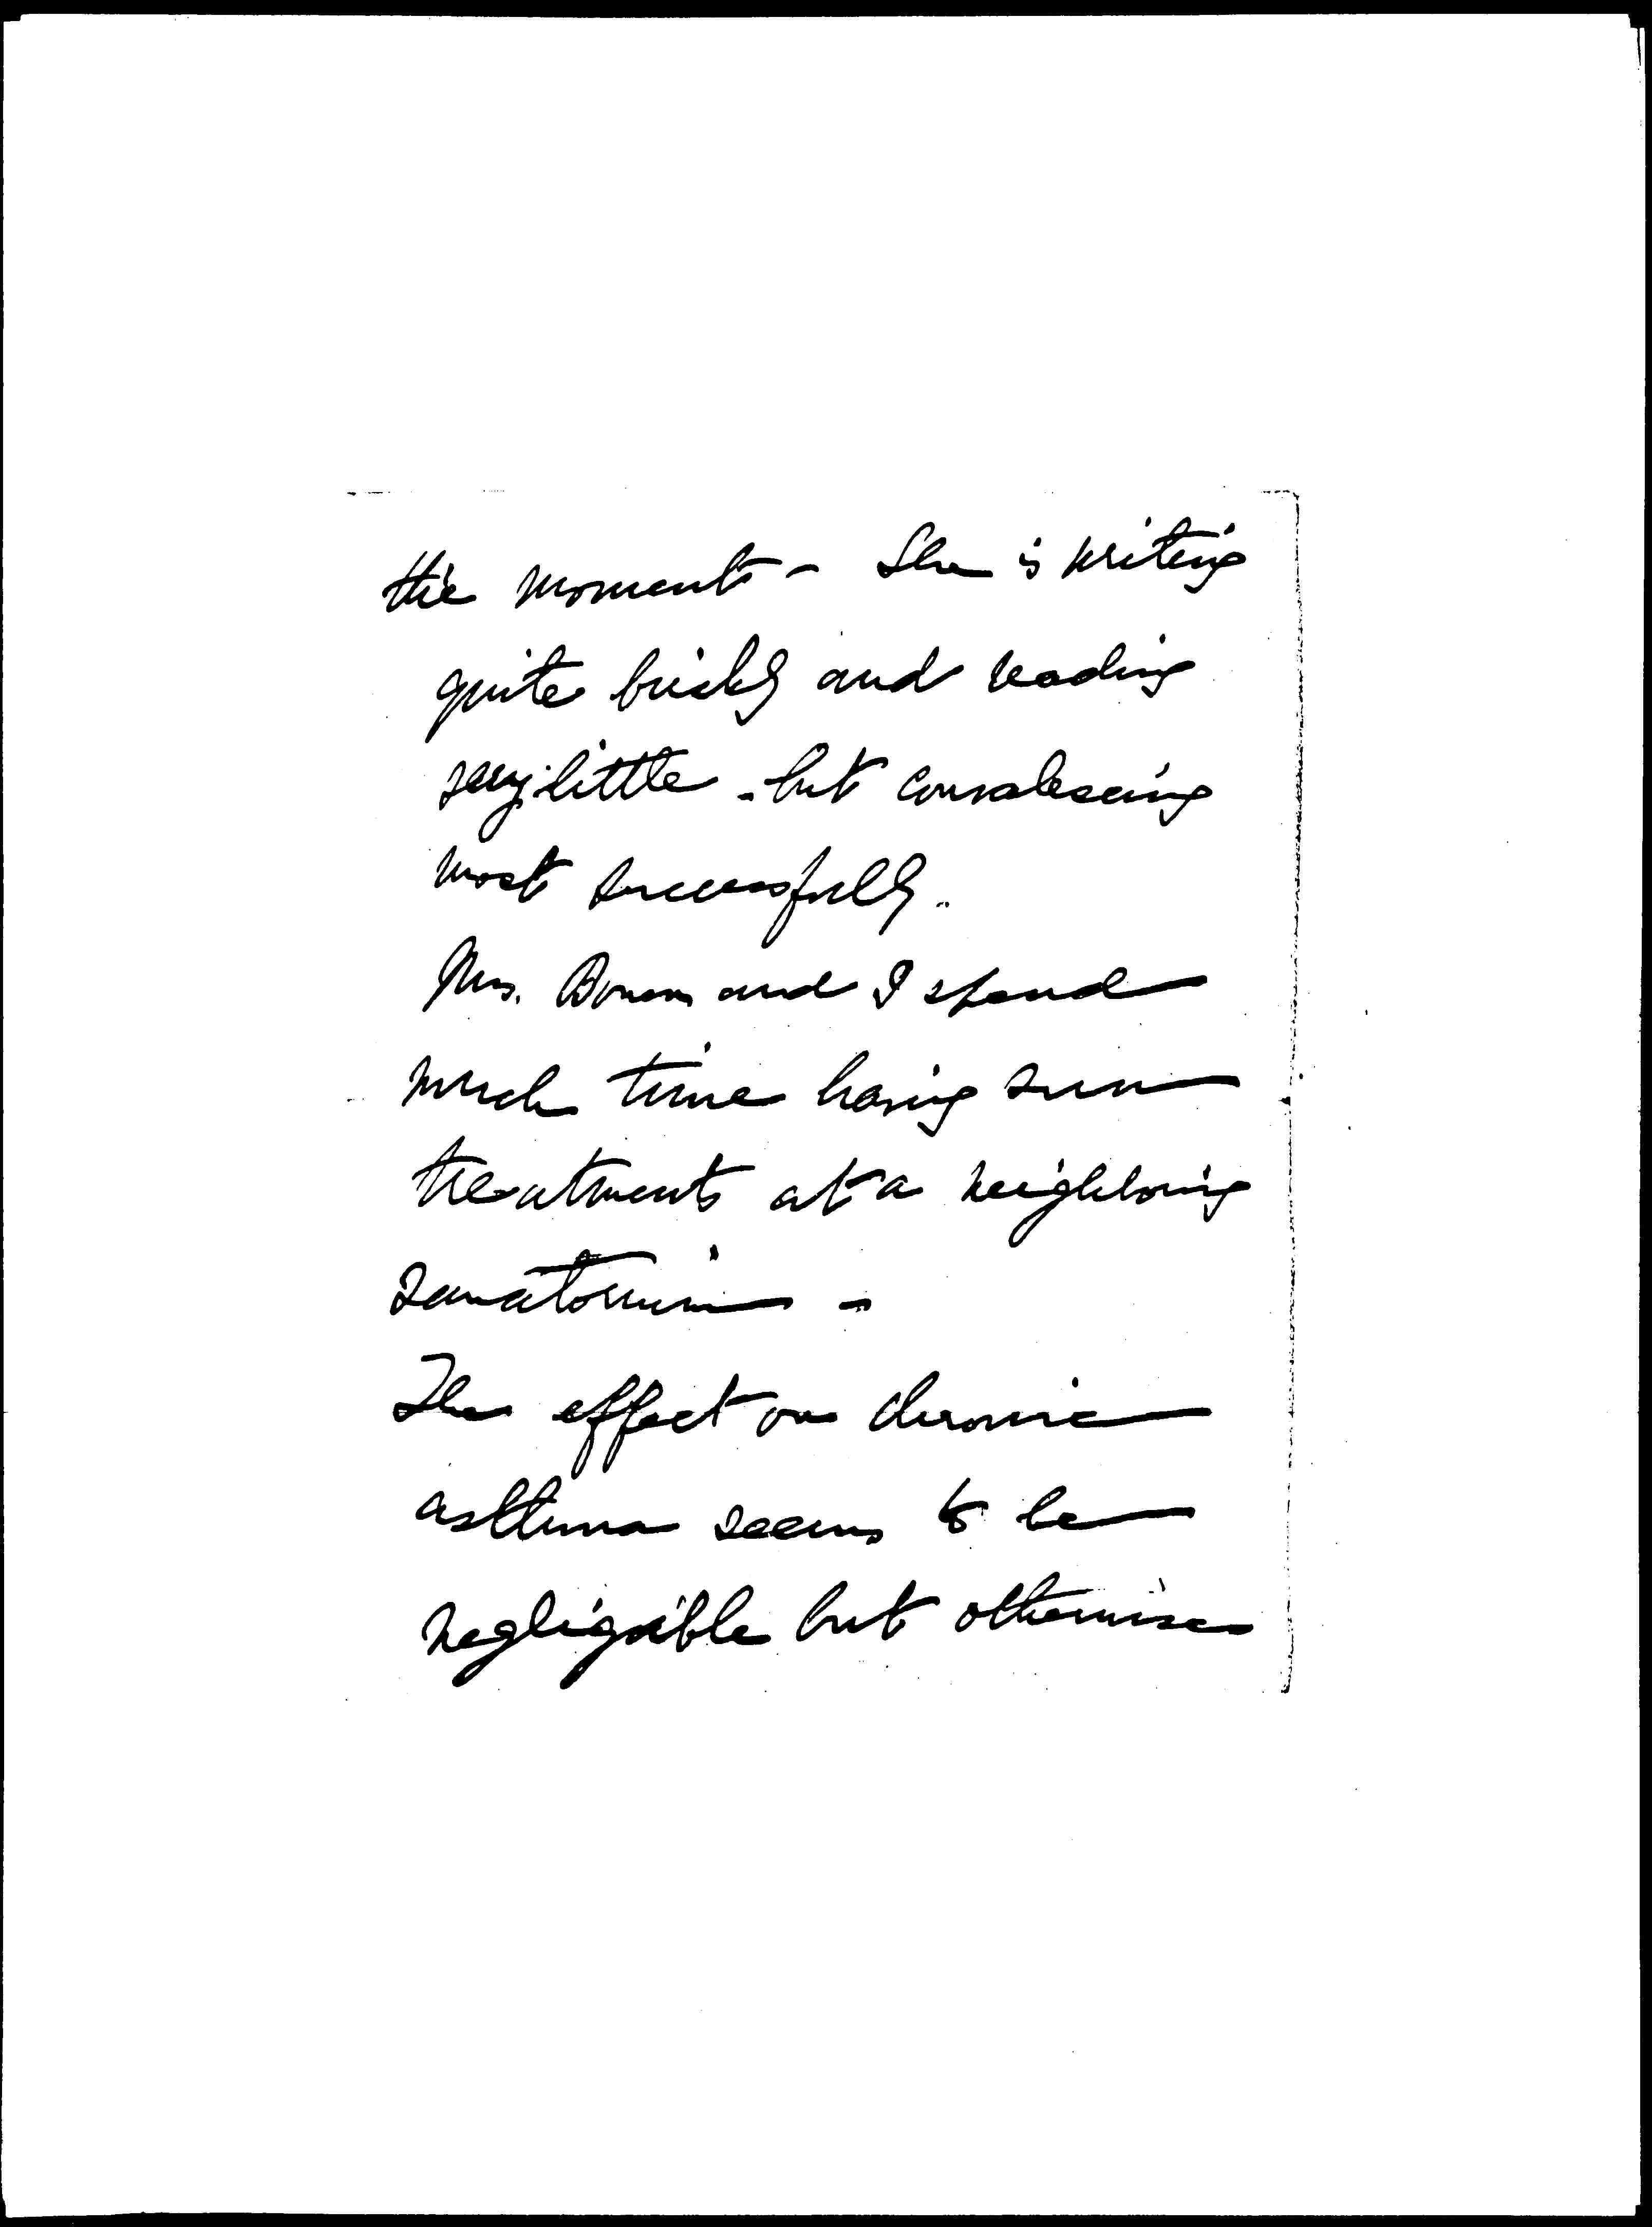 the moment - She is writing
quite briskly and reading
very little - but convalescing
most successfully.
Mrs. and I spend
much time having sun
treatments at a neighboring
sanatorium -
The effect on chronic
asthma seems to be
negligible but otherwise